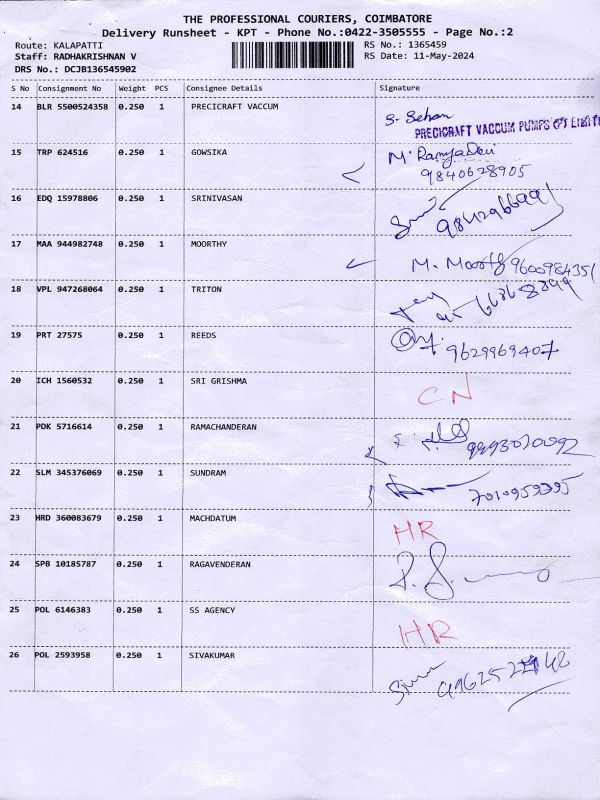 THE PROFESSIONAL COURIERS, COIMBATORE
Delivery Runsheet - KPT - Phone No.:0422-3505555 - Page No.:2
Route: KALAPATTI
Staff: RADHAKRISHNAN V
DRS No.: DCJB136545902
RS No.: 1365459
RS Date: 11-May-2024
S No Consignment No Weight PCS Consignee Details Signature
14 BLR 5500524358 0.250 1 PRECICRAFT VACCUM
PRECICRAFT VACCUM PUMPS
15 TRP 624516 0.250 1 GOWSIKA M. Ramya Devi
9840628905
16 EDQ 15978806 0.250 1 SRINIVASAN
17 MAA 944982748 0.250 1 MOORTHY M. Moorthy 9600984351
18 VPL 947268064 0.250 1 TRITON
19 PRT 27575 0.250 1 REEDS 9629969407
20 ICH 1560532 0.250 1 SRI GRISHMA CN
21 PDK 5716614 0.250 1 RAMACHANDERAN
22 SLM 345376069 0.250 1 SUNDRAM 7010959395
23 HRD 360083679 0.250 1 MACHDATUM HR
24 SPB 10185787 0.250 1 RAGAVENDERAN
25 POL 6146383 0.250 1 SS AGENCY HR
26 POL 2593958 0.250 1 SIVAKUMAR